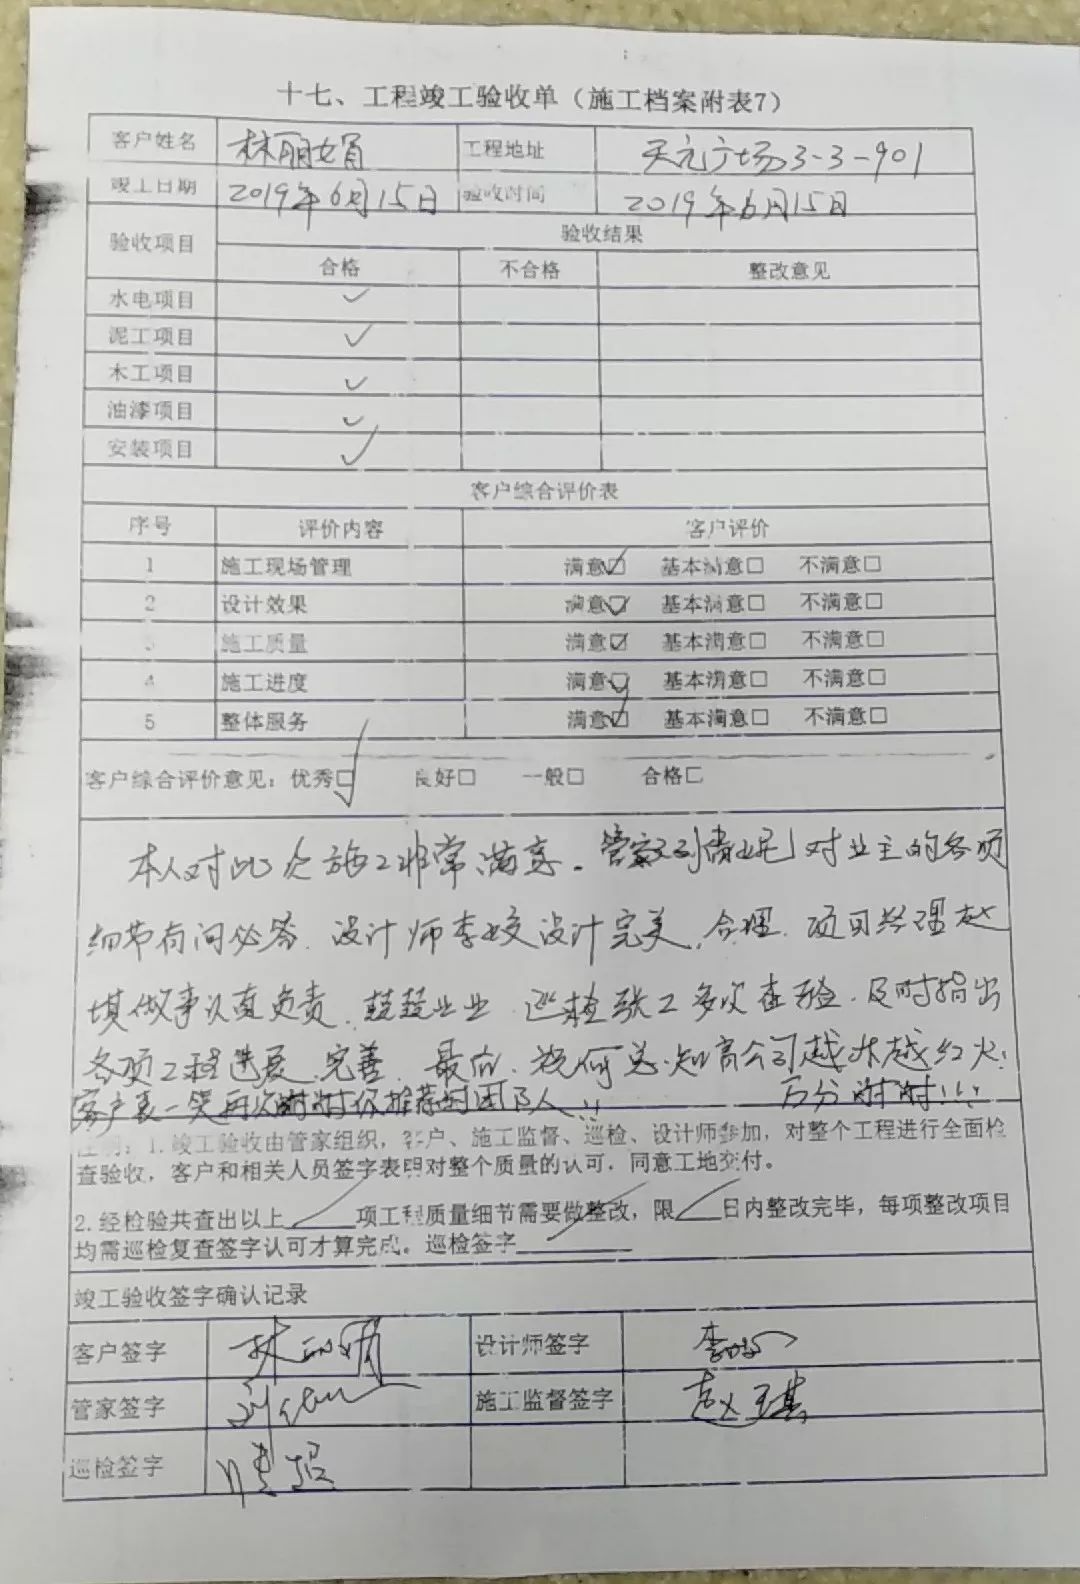 十七、工程竣工验收单（施工档案附表7）
客户姓名 林丽娟 工程地址 天元广场3-3-901
竣工日期 2019年6月15日 验收时间 2019年6月15日
验收项目 验收结果
合格 不合格 整改意见
水电项目 ✓
泥工项目 ✓
木工项目 ✓
油漆项目 ✓
安装项目 ✓
客户综合评价表
序号 评价内容 客户评价
1 施工现场管理 满意☑ 基本满意□ 不满意□
2 设计效果 满意☑ 基本满意□ 不满意□
3 施工质量 满意☑ 基本满意□ 不满意□
4 施工进度 满意☑ 基本满意□ 不满意□
5 整体服务 满意☑ 基本满意□ 不满意□
客户综合评价意见：优秀☑ 良好□ 一般□ 合格□
本人对此次施工非常满意。管家刘 对业主的各项
细节有问必答、设计师李 设计完美、合理、项目经理赵
琪做事认真负责、兢兢业业、巡检张工多次查验、及时指出
各项工程进展、完善、最后、祝何总·知 公司越来越红火！
再次谢谢你推荐的团队 !!! 万分谢谢!!!
注明：1.竣工验收由管家组织，客户、施工监督、巡检、设计师参加，对整个工程进行全面检
查验收，客户和相关人员签字表明对整个质量的认可，同意工地交付。
2.经检验共查出以上 项工程质量细节需要做整改，限 日内整改完毕，每项整改项目
均需巡检复查签字认可才算完成。巡检签字
竣工验收签字确认记录
客户签字 林丽娟 设计师签字
管家签字 施工监督签字
巡检签字